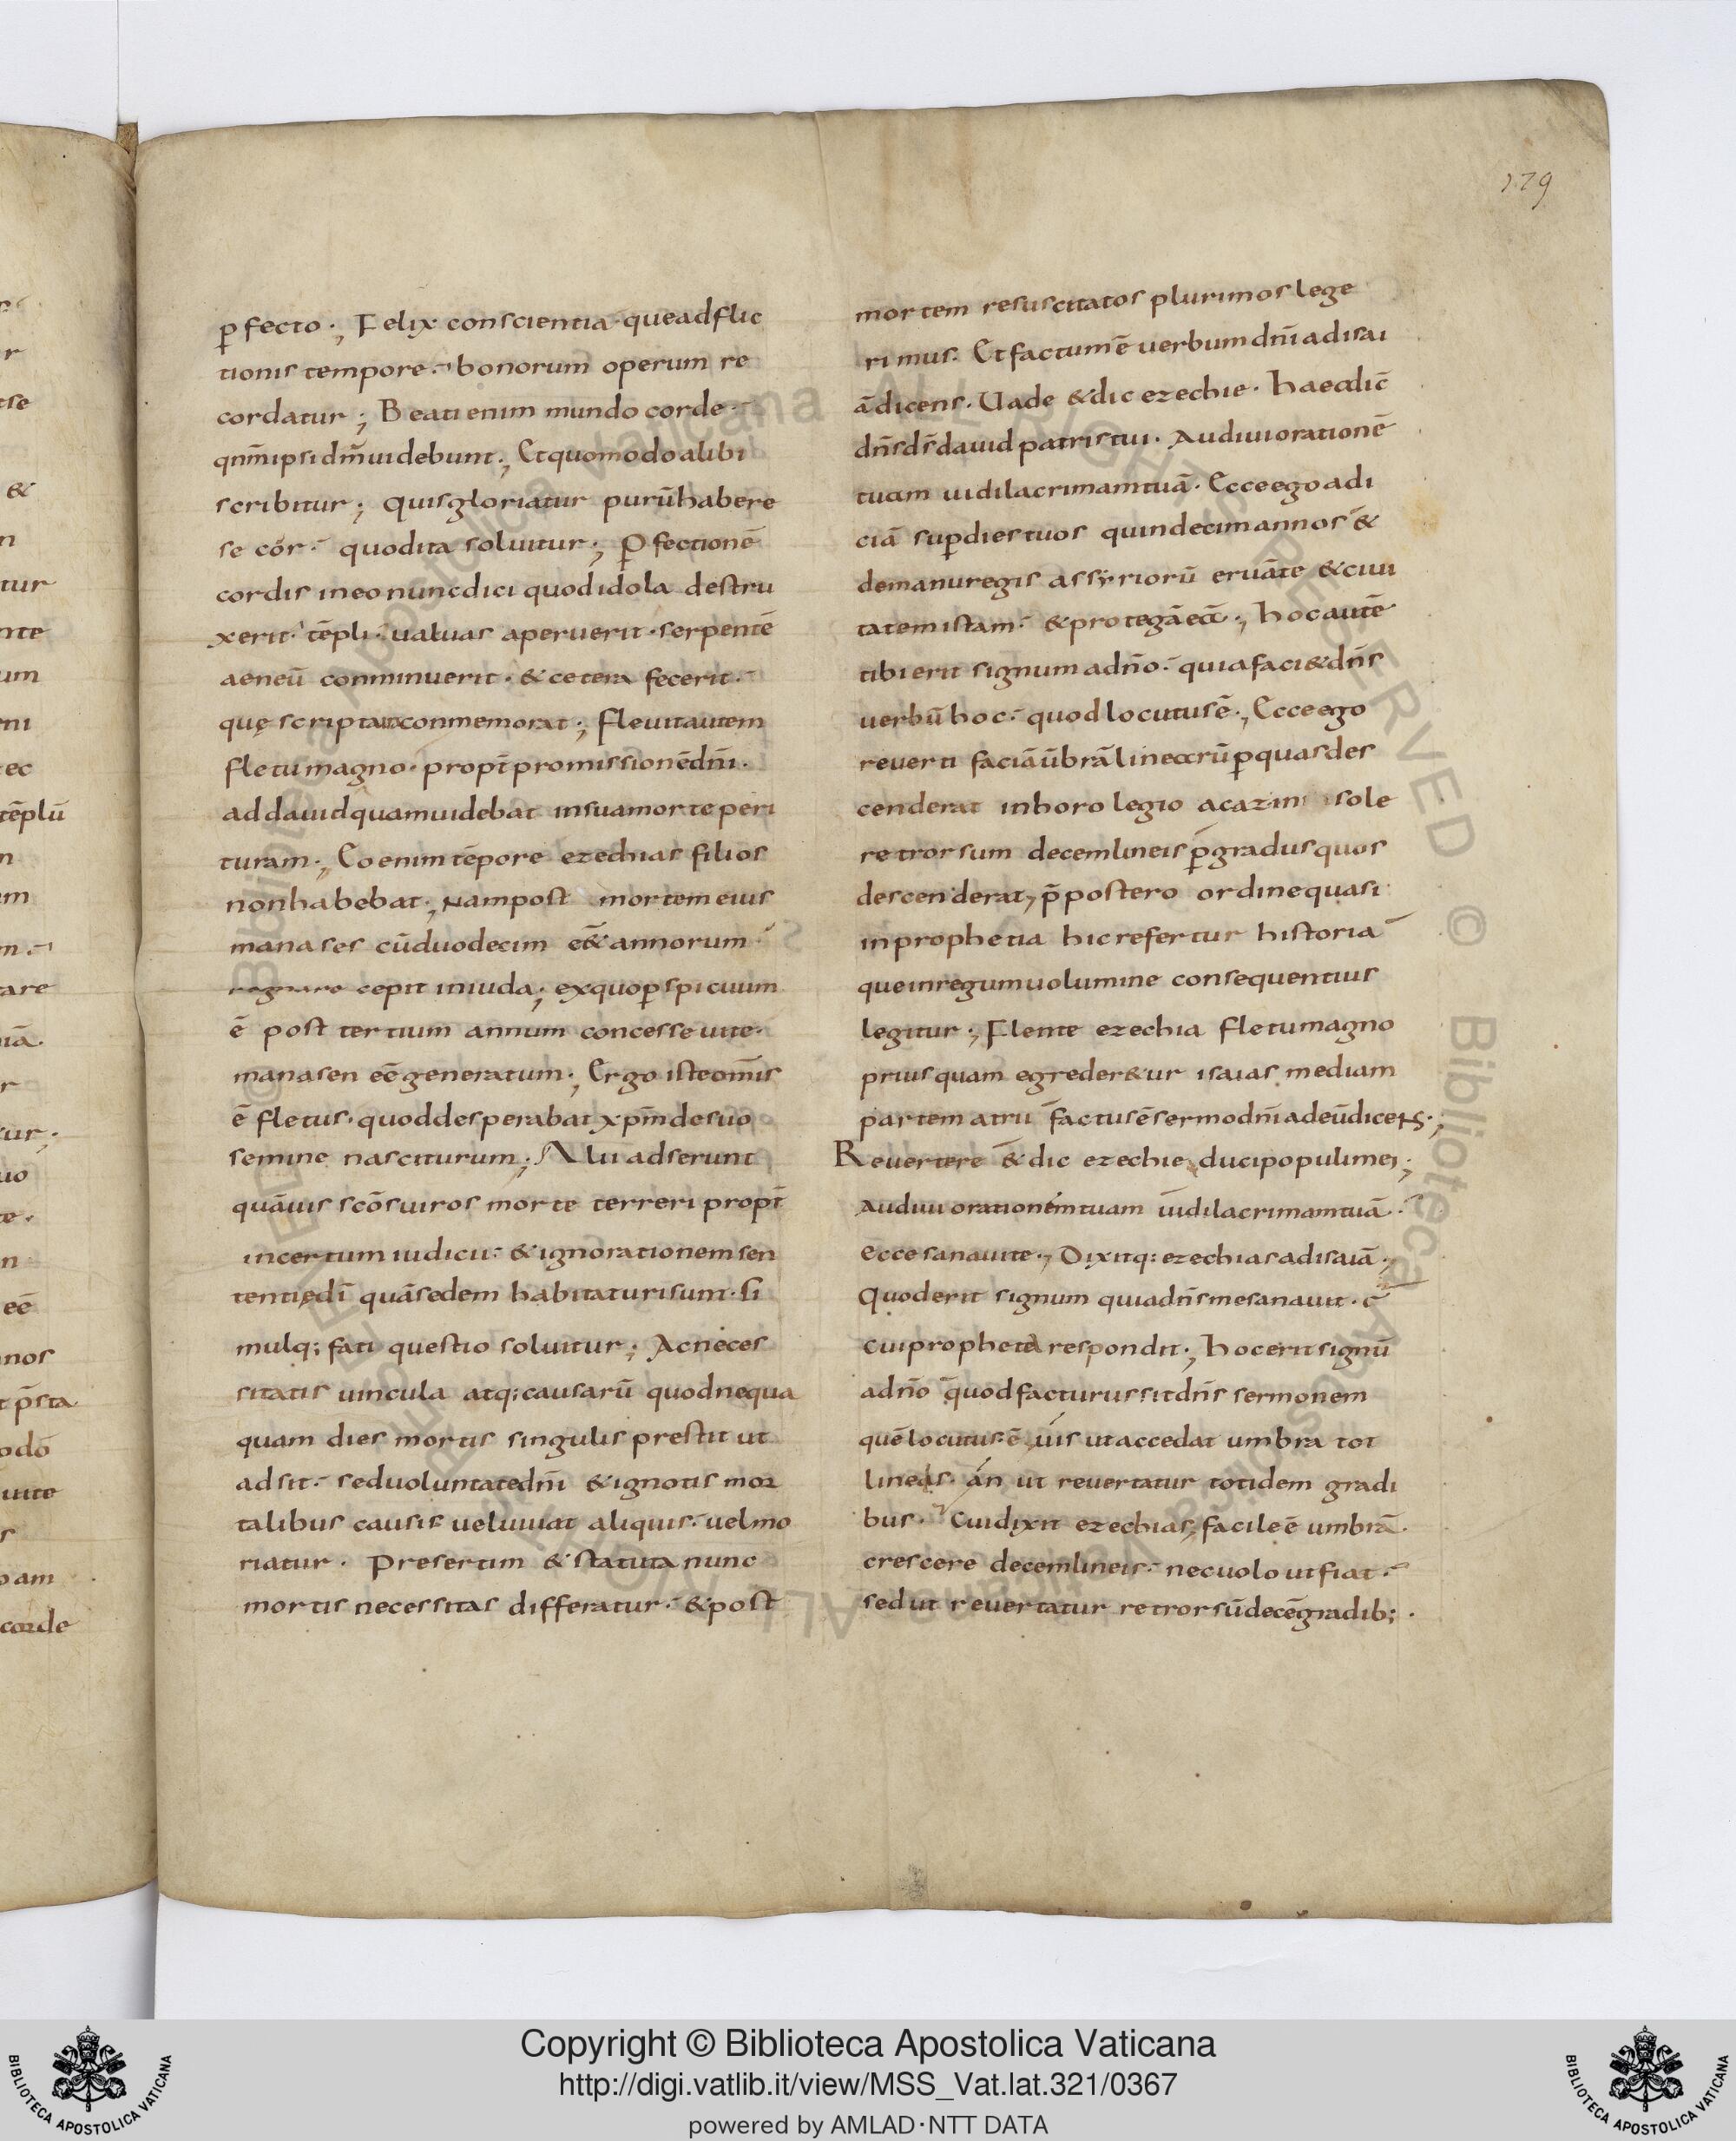 179
ꝑfecto·; Felix conscientia· queadflic
tionis tempore· bonorum operum re
cordatur; Beati enim mundo corde·
qnm̄ ipsi dm̄ uidebunt·; Et quomodo alibi
scribitur; quis gloriatur purū habere
se cor· quod ita soluitur; Ꝑfectionē
cordis in eo nunc dici quod idola destru
xerit· tēpli· ualuas aperuerit· serpentē
aeneū conminuerit· & cetera fecerit·
quę scriptura conmemorat; fleuit autem
fletu magno· propt̄ promissionē dn̄i·
ad dauid quam uidebat in sua morte peri
turam·; Eo enim tēpore ezechias filios
non habebat·; Nam post mortem eius
manases cū duodecim eēt annorum·
regnare cepit in iuda; ex quo ꝑspicuum
ē post tertium annum concesse uite·
manasen eē generatum·; Ergo iste omīs
ē fletus· quod desperabat xpm̄ de suo
semine nasciturum; Alii adserunt
quāuis scōs uiros morte terreri propt̄
incertum iudicii· & ignorationem sen
tentię dī quā sedem habitaturi sunt· Si
mulq; fati questio soluitur; Ac neces
sitatis uincula atq; causarū quod nequa
quam dies mortis singulis prestit ut
adsit· sed uoluntate dn̄i & ignotis mor
talibus causis uel uiuat aliquis· uel mo
riatur· Presertim & statuta nunc
mortis necessitas differatur· & post
mortem resuscitatos plurimos lege
rimus· Et factum ē uerbum dn̄i ad isai
ā dicens· Uade & dic ezechie· haec dic̄
dn̄s ds̄ dauid patris tui· Audiui orationē
tuam uidi lacrimam tuā· Ecce ego adi
ciā suꝑ dies tuos quindecim annos &
de manu regis assyriorū eruā te & ciui
tatem istam· & protegā eā·; hoc autē
tibi erit signum a dn̄o· quia faci& dn̄s
uerbū hoc· quod locutus ē·; Ecce ego
reuerti faciā ūbrā linearū ꝑ quas des
cenderat in horologio acaz in sole
retrorsum decem lineis ꝑ gradus quos
descenderat, p̄postero ordine quasi
in prophetia hic refertur historia
que in regum uolumine consequentius
legitur·; Flente ezechia fletu magno
prius quam egreder&ur isaias mediam
partem atrii factus ē sermo dn̄i ad eū dicens·;
Reuertere & dic ezechie duci populi mei;
Audiui orationem tuam uidi lacrimam tuā·
ecce sanaui te·, Dixitq; ezechias ad isaiā·
Quod erit signum quia dn̄s me sanauit·
cui propheta respondit·; hoc erit signū
a dn̄o quod facturus sit dn̄s sermonem
quē locutus ē uis ut accedat umbra tot
lineis· an ut reuertatur totidem gradi
bus· Cui dixit ezechias, facile ē umbrā
crescere decem lineis· nec uolo ut fiat·
sed ut reuertatur retrorsū decē gradib;·
Copyright © Biblioteca Apostolica Vaticana
http://digi.vatlib.it/view/MSS_Vat.lat.321/0367
powered by AMLAD·NTT DATA
BIBLIOTECA APOSTOLICA VATICANA
BIBLIOTECA APOSTOLICA VATICANA